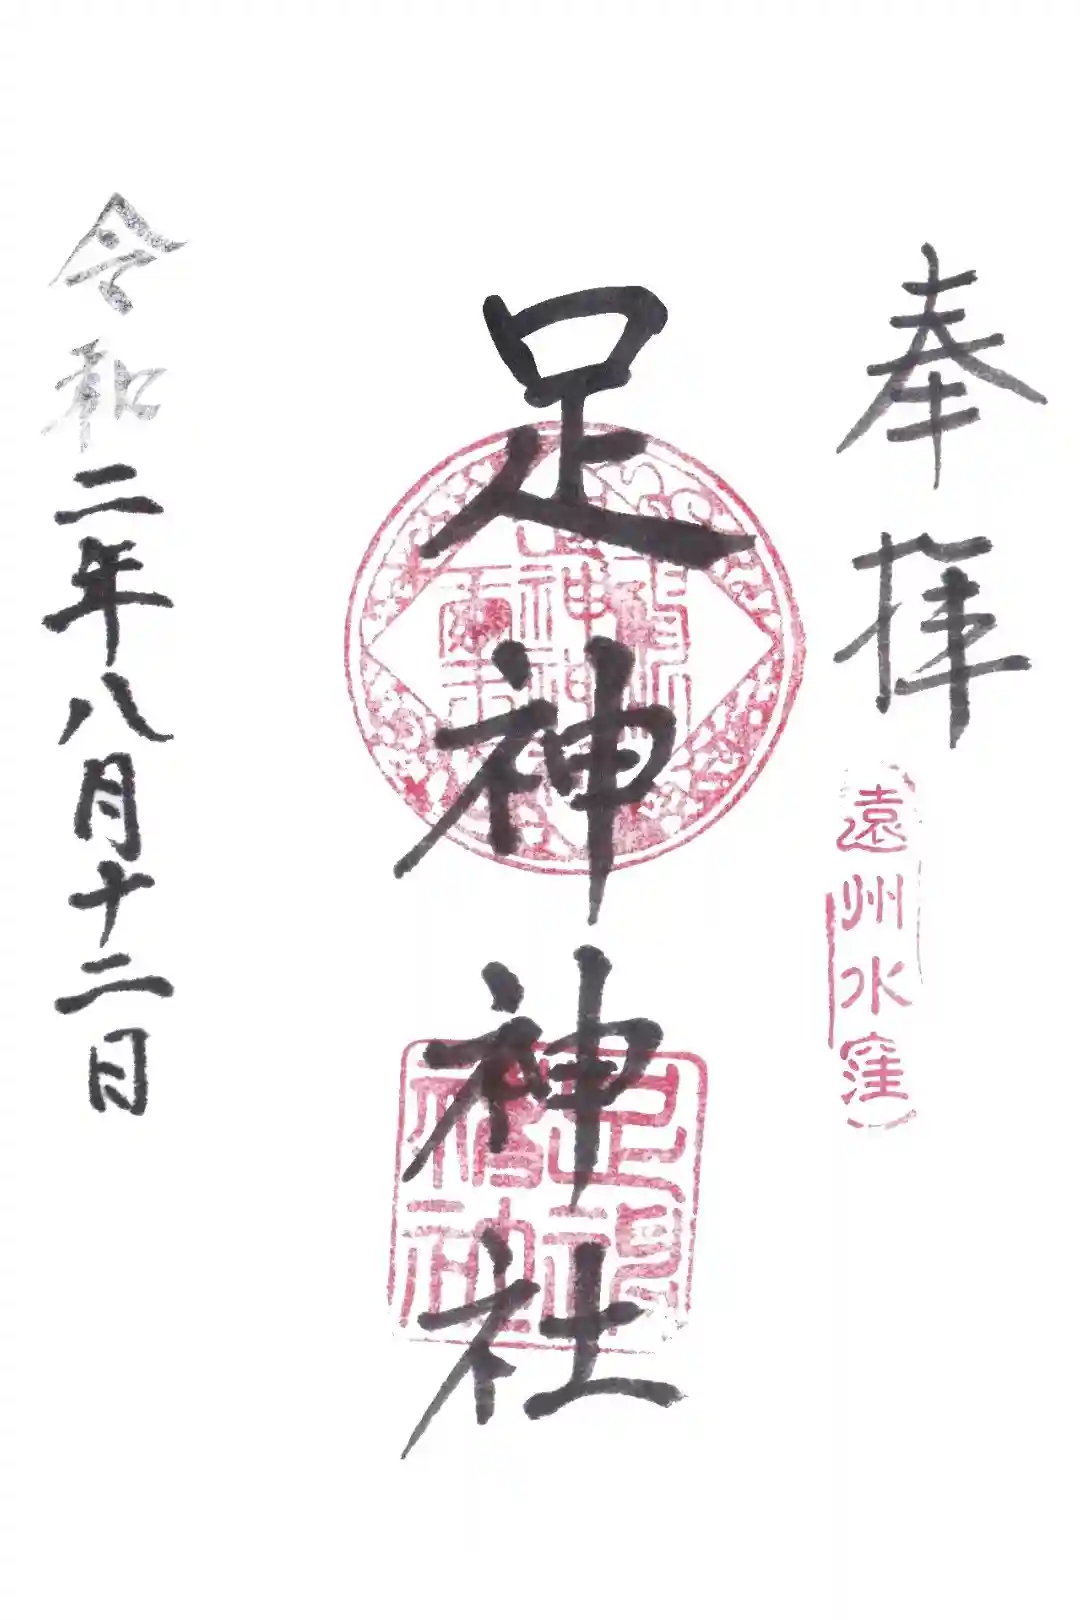 奉拝
遠州水窪
足神神社
令和二年八月十二日